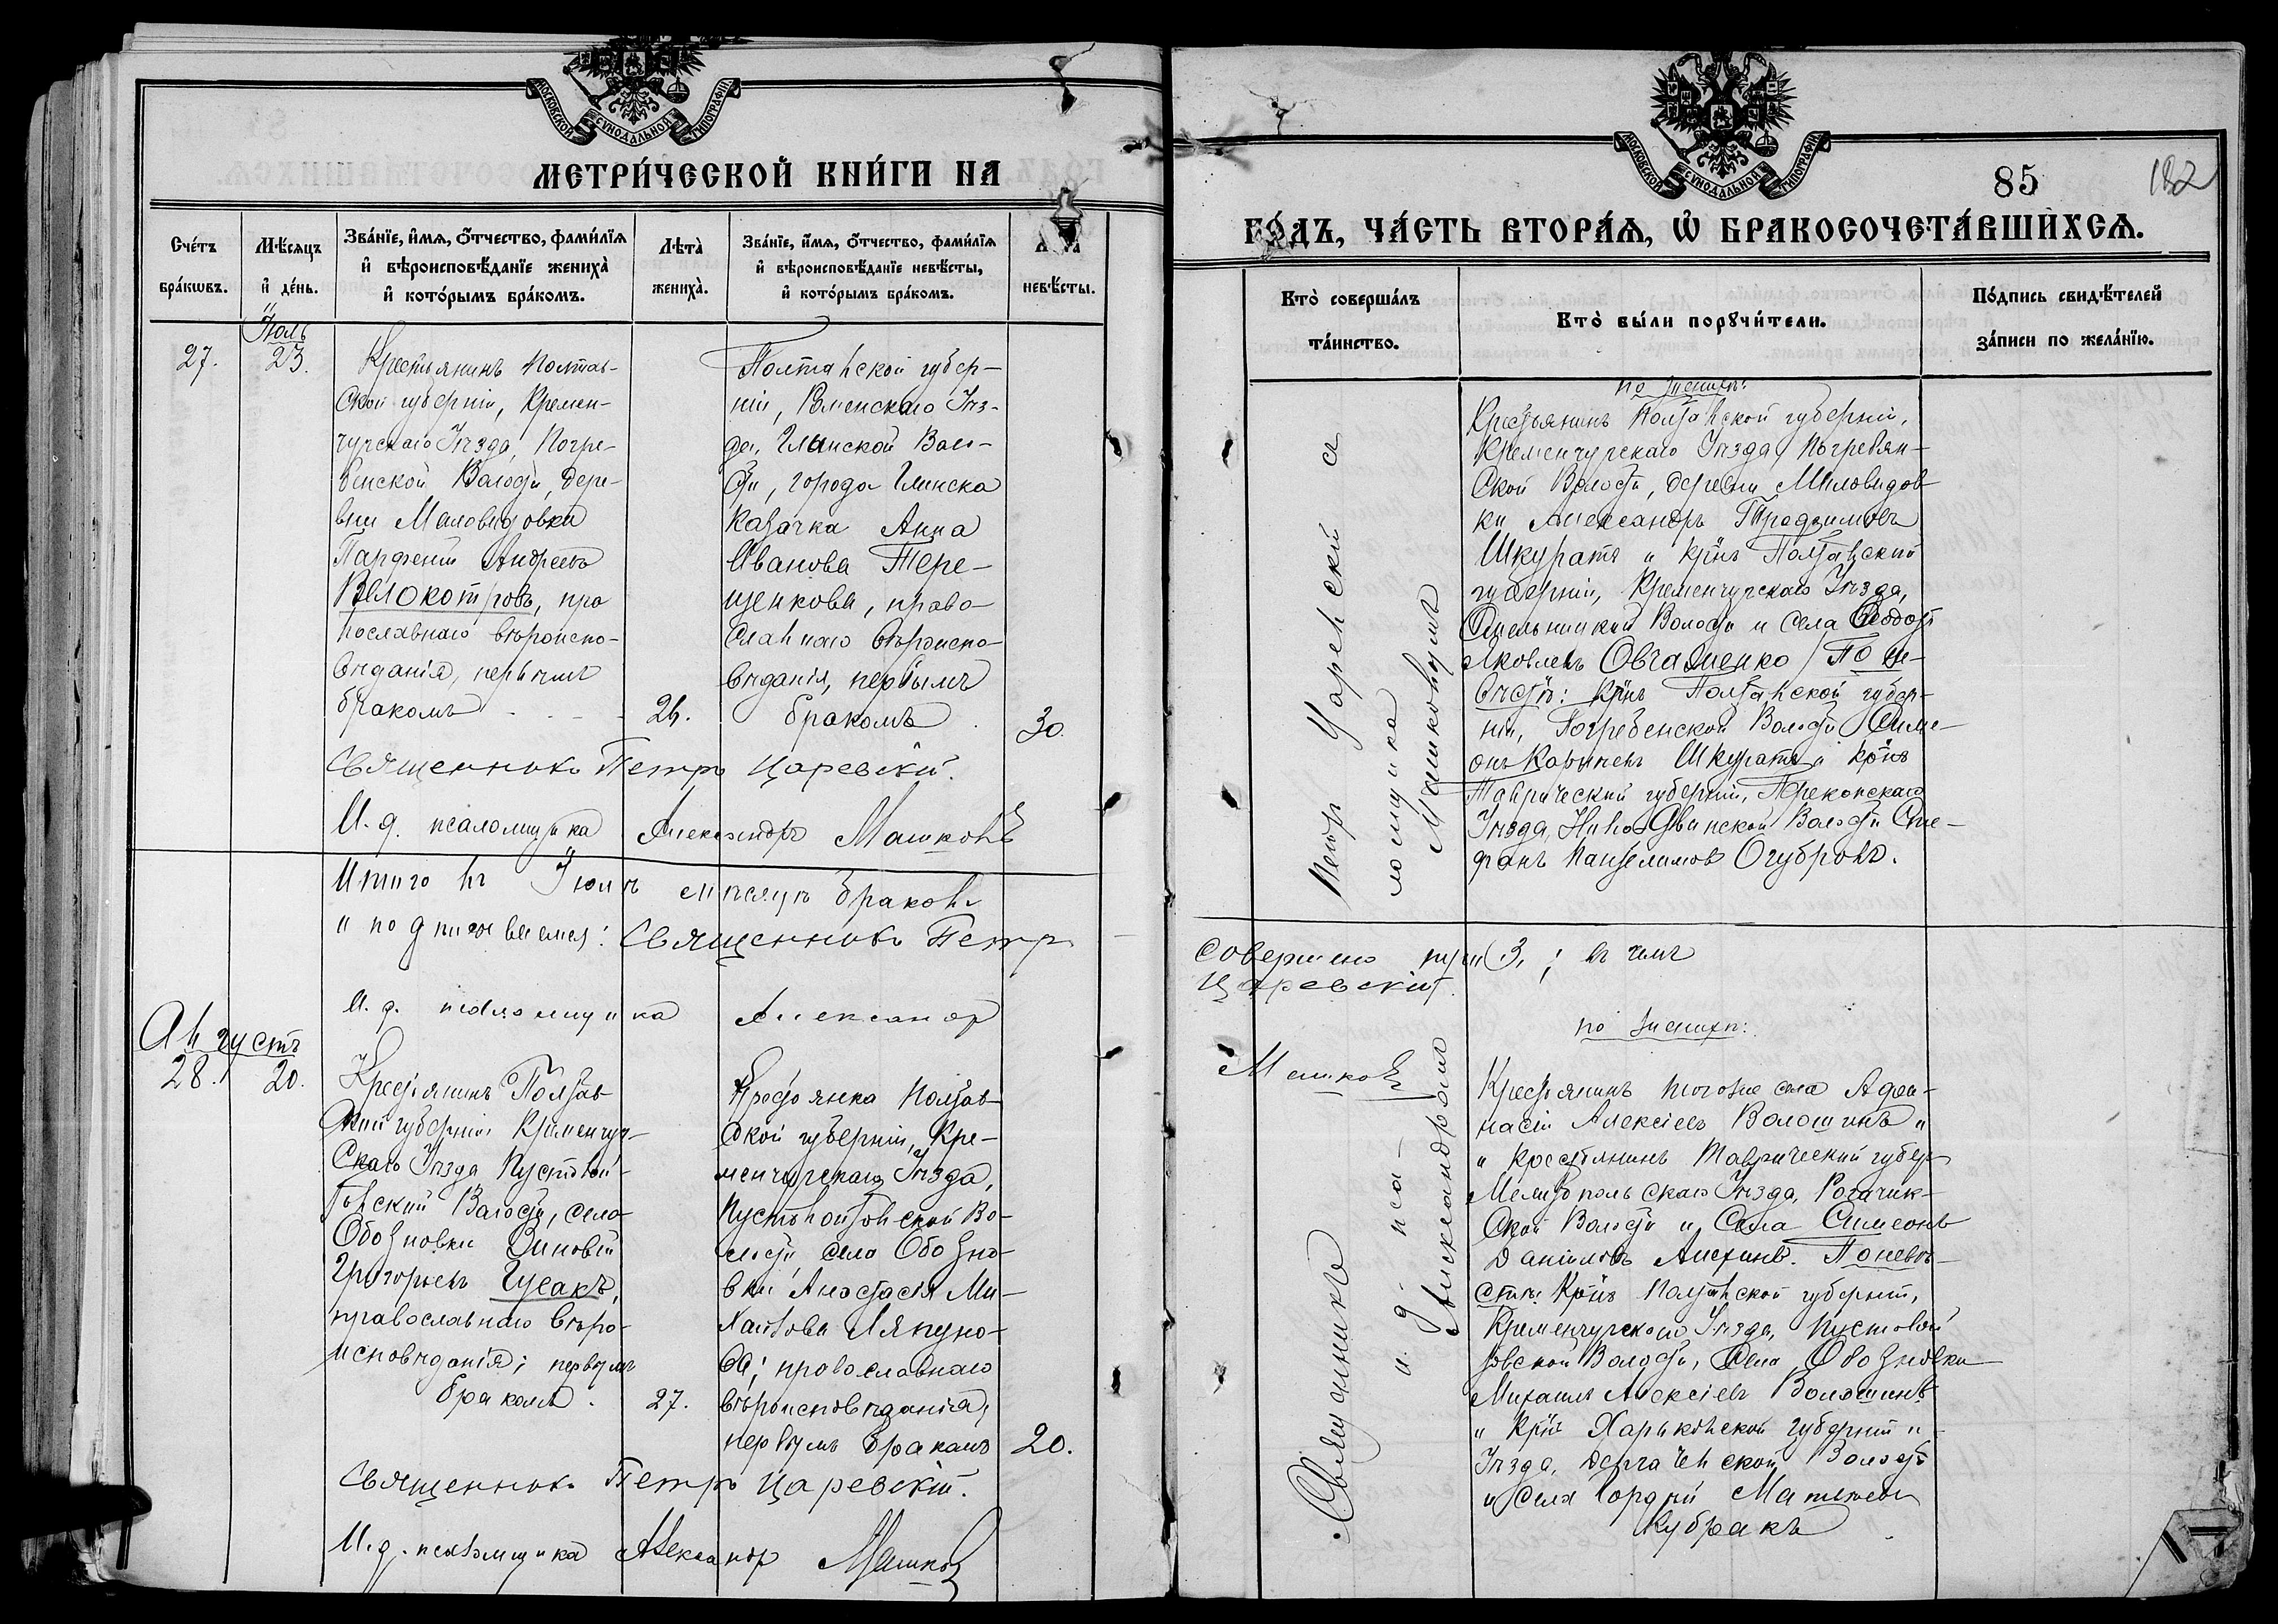 МОСКОВСКОЙ СѴНОДАЛЬНОЙ ТИПОГРАФІИ
МЕТРИ́ЧЕСКОЙ КНИ́ГИ НА
Сче́тъ бра́кωвъ.
Мѣ́сяцъ и҆ де́нь.
Зва́нїе, и҆́мѧ, ѻ҆́тчество, фами́лїѧ и҆ вѣроисповѣ́данїе жениха̀ и҆ кото́рымъ бра́комъ.
Лѣта̀ жениха̀.
Зва́нїе, и҆́мѧ, ѻ҆́тчество, фами́лїѧ и҆ вѣроисповѣ́данїе невѣ́сты, и҆ кото́рымъ бра́комъ.
невѣ́сты.
Іюль
27.
23.
Крестьянинъ Полтав-
ской губерніи, Кремен-
чугскаго Уѣзда, Погре-
бенской Волости, дере-
вни Маловидовки
Парфеній Андреевъ
Бѣлокопытовъ, пра
вославнаго вѣроиспо-
вѣданія, первымъ
бракомъ
26.
Полтавской губер-
ніи, Роменскаго Уѣз-
да, Глинской Воло-
сти, города Глинска
казачка Анна
Иванова Тере-
щенкова, право-
славнаго вѣроиспо-
вѣданія, первымъ
бракомъ
30.
Священникъ Петръ Царевскій.
И. д. псаломщика Александръ Машковъ
Итого въ Іюлѣ мѣсяцѣ браковъ
и подписываемся: Священникъ Петръ
И. д. псаломщика Александр
Августъ
28.
20.
Крестьянинъ Полтав-
ской губерніи Кременчуг-
скаго Уѣзда Пустовой-
товской Волости, села
Обозновки Зиновій
Григорьевъ Гусакъ,
православнаго вѣро-
исповѣданія; первымъ
бракомъ.
27.
Крестьянка Полтав-
ской губерніи, Кре-
менчугскаго Уѣзда,
Пустовойтовской Во-
лости, села Обозно-
вки Анастасія Ми-
хаилова Ляпуно-
ва; православнаго
вѣроисповѣданія,
первымъ бракомъ
20.
Священникъ Петръ Царевскій.
И. д. псаломщика Александр Машков
МОСКОВСКОЙ СѴНОДАЛЬНОЙ ТИПОГРАФІИ
85
182
ГО́ДЪ, ЧА́СТЬ ВТОРА́Ѧ, Ѽ БРАКОСОЧЕТА́ВШИХСѦ.
Кто̀ соверша́лъ та́инство.
Кто̀ бы́ли порꙋчи́тели.
По́дпись свидѣ́телей за́писи по жела́нїю.
Петр Царевскій
ломщика
Машковымъ
по женихѣ:
Крестьянинъ Полтавской губерніи,
Кременчугскаго Уѣзда, Погребян-
ской Волости, деревни Миловидов
ки Александръ
Шкуратъ и крнъ Полтавской
губерніи, Кременчугскаго Уѣзда,
Омельницкой Волости и села Ѳеодотъ
Яковлевъ Овчаренко По не-
вѣстѣ: Крнъ Полтавской губер-
ніи, Погребенской Волости Симе-
онъ Карповъ Шкуратъ и крнъ
Таврической губерніи, Перекопскаго
Уѣзда, Волости Сте-
фанъ Пантелимовъ
совершено три (3); въ чемъ
Царевскій.
Машковъ
Священникъ
и. д. пса-
Александромъ
по женихѣ:
Крестьянинъ того же села Афа-
насій Алексіевъ Волошинъ и
и Крестьянинъ Таврической губер
Мелитопольскаго Уѣзда, Рогачик-
ской Волости и Села Симеонъ
Даніиловъ По невѣ-
стѣ: Крнъ Полтавской губерніи,
Кременчугскаго Уѣзда, Пустовой
товской Волости, Села Обозновки
Михаилъ Алексіевъ Волошинъ
и Крнъ Харьковской губерніи и
Уѣзда, Дергачевской Волости
и Села Гордій Матвѣевъ
Кубракъ